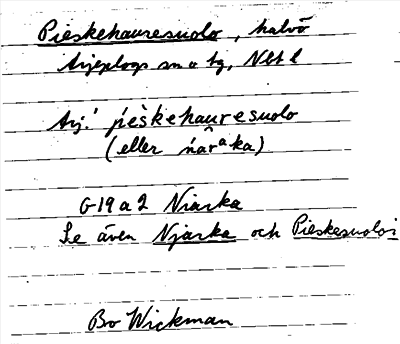 Pieskehauresuolo, halvö
Arjeplogs sn o tg, Nbt l
Arj.: pìeskehauresuolo
(eller ńârᵃka)
G-19 a 2 Niarka
Se även Njarka och Pieskesuoloi
Bo Wickman